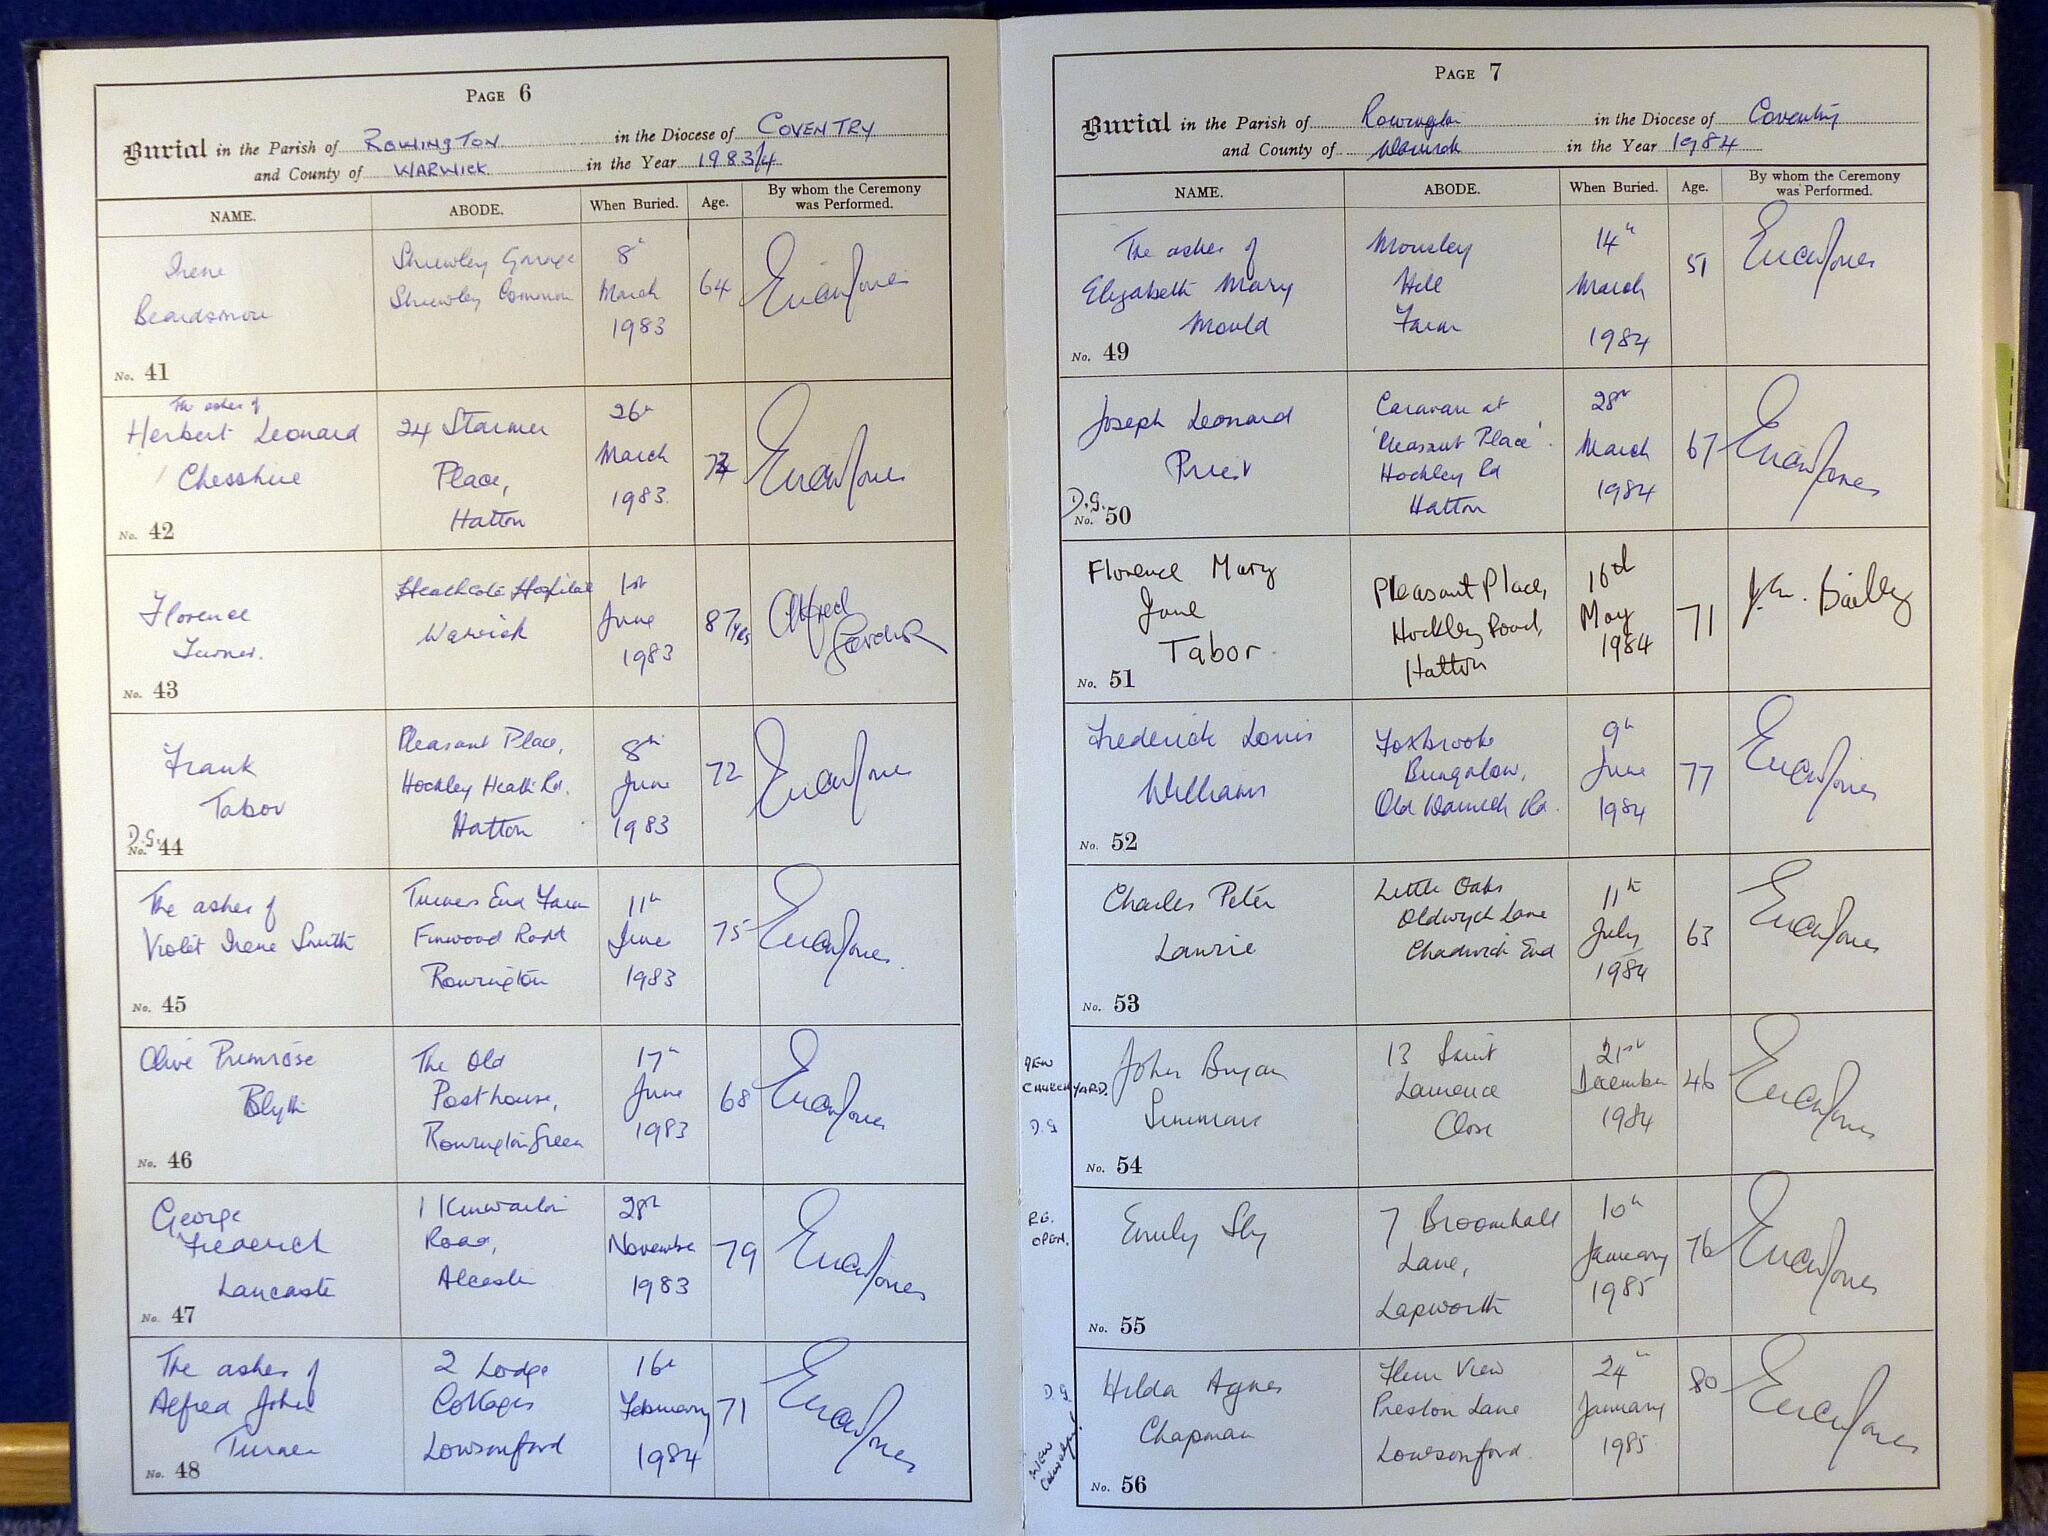 PAGE 6
Burial in the Parish of ROWINGTON in the Diocese of COVENTRY
and County of WARWICK in the Year 1983/4
NAME. ABODE. When Buried. Age. By whom the Ceremony was Performed.
Irene Shrewley Garage 8th
Beardsmore Shrewley Common March 64
1983
No. 41
The ashes of
Herbert Leonard 24 Starmer 26th
Chesshire Place, March
Hatton 1983
No. 42
Florence Heathcote Hospital 1st Alfred
Turner. Warwick June 87 yrs
1983
No. 43
Frank Pleasant Place, 8th
Tabor Hockley Heath Rd. June 72
Hatton 1983
D.G.
No. 44
The ashes of Turners End Farm 11th
Violet Irene Smith Finwood Road June 75
Rowington 1983
No. 45
Olive Primrose The Old 17th
Blyth Posthouse, June 68
Rowington Green 1983
No. 46
George 1 Kinwarton 28th
Frederick Road, November 79
Lancaster Alcester 1983
No. 47
The ashes of 2 Lodge 16th
Alfred John Cottages February 71
Turner Lowsonford 1984
No. 48
PAGE 7
Burial in the Parish of Rowington in the Diocese of Coventry
and County of Warwick in the Year 1984
NAME. ABODE. When Buried. Age. By whom the Ceremony was Performed.
The ashes of Mousley 14th
Elizabeth Mary Hill March 51
Mould Farm 1984
No. 49
Joseph Leonard Caravan at 28th
Priest 'Pleasant Place'. March 67
Hockley Rd 1984
Hatton
D.G.
No. 50
Florence Mary Pleasant Place, 16th
Jane Hockley Road, May 71 Bailey
Tabor. Hatton 1984
No. 51
Frederick Louis Foxbrooke 9th
Williams Bungalow, June 77
Old Warwick Rd. 1984
No. 52
Charles Peter Little Oaks 11th
Lawrie Oldwych Lane July 63
Chadwick End 1984
No. 53
NEW John Bryan 13 Saint 21st
CHURCHYARD. Simmons Laurence December 46
D.G Close 1984
No. 54
RE. Emily Sly 7 Broomhall 10th
OPEN. Lane, January 76
Lapworth 1985
No. 55
D.G. Hilda Agnes View 24th
Chapman Preston Lane January 80
NEW Lowsonford. 1985
No. 56